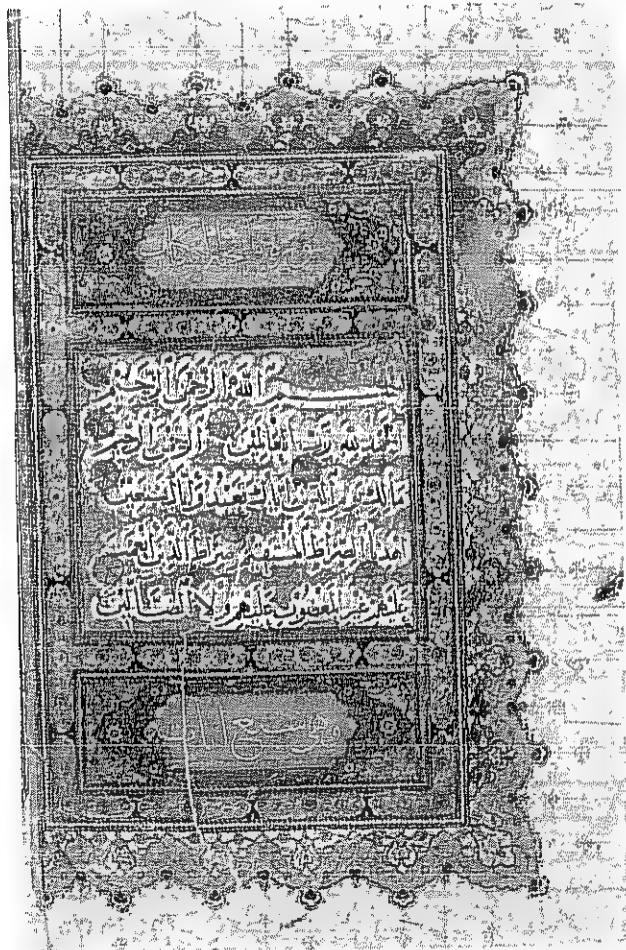 بسم الله الرحمن الرحيم
الحمد لله رب العالمين الرحمن الرحيم
مالك يوم الدين اياك نعبد واياك نستعين
اهدنا الصراط المستقيم صراط الذين انعمت
عليهم غير المغضوب عليهم ولا الضالين
وهي سبع ايات